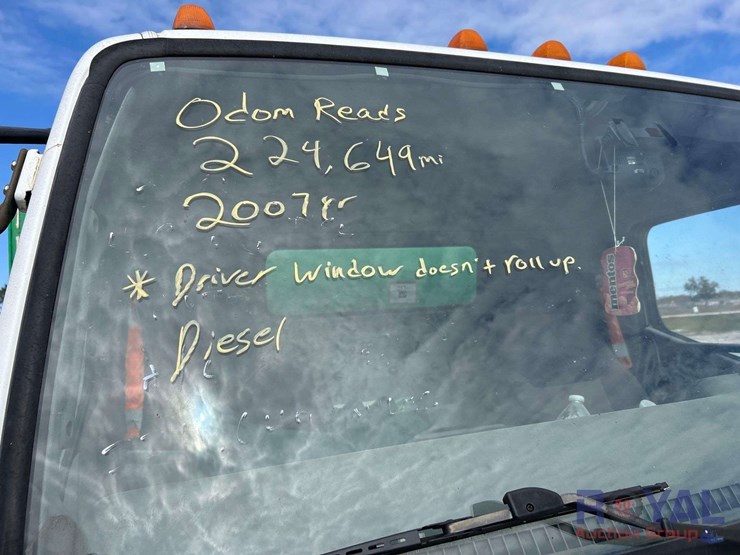 Odom Reads
224,649 mi
2007 yr
* Driver Window doesn't roll up.
Diesel
mentos
ROYAL
Auction Group